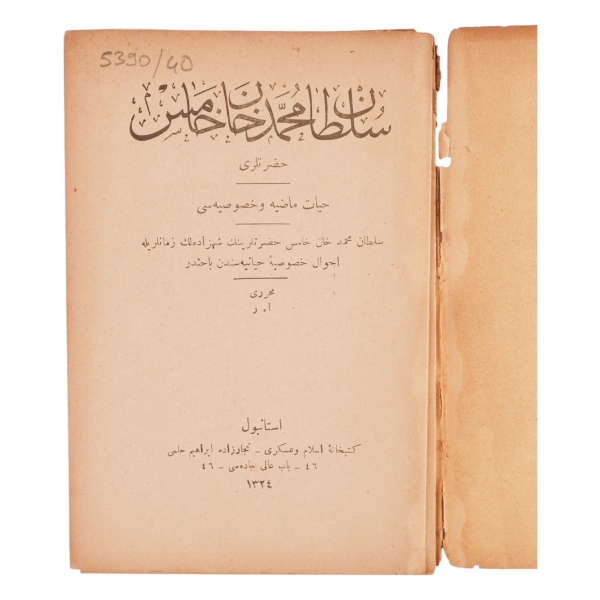 5390/40
سلطان محمد خان خامس
حضرتلری
حیات ماضیه و خصوصیه‌سی
سلطان محمد خان خامس حضرتلرینك شهزاده‌لك زمانلریله
احوال خصوصیهٔ حیاتیه‌سندن باحثدر
محرری
ا . ر
استانبول
كتبخانهٔ اسلام وعسكری - تجارزاده ابراهیم حلمی
٤٦ - باب عالی جاده‌سی - ٤٦
١٣٢٤